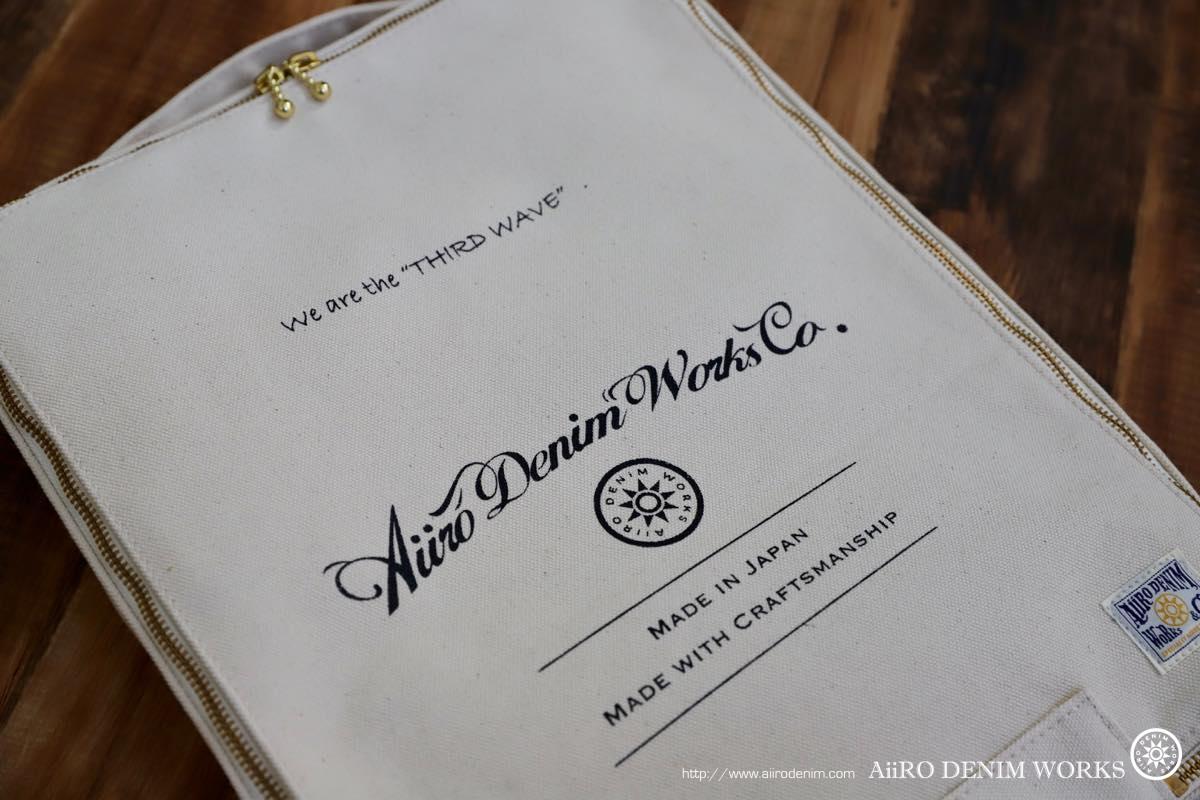 We are the "THIRD WAVE".
Aiiro Denim Works Co.
AIIRO DENIM WORKS
MADE IN JAPAN
MADE WITH CRAFTSMANSHIP
AiiRO DENIM
WORKS
http://www.aiirodenim.com AiiRO DENIM WORKS
DENIM WORKS